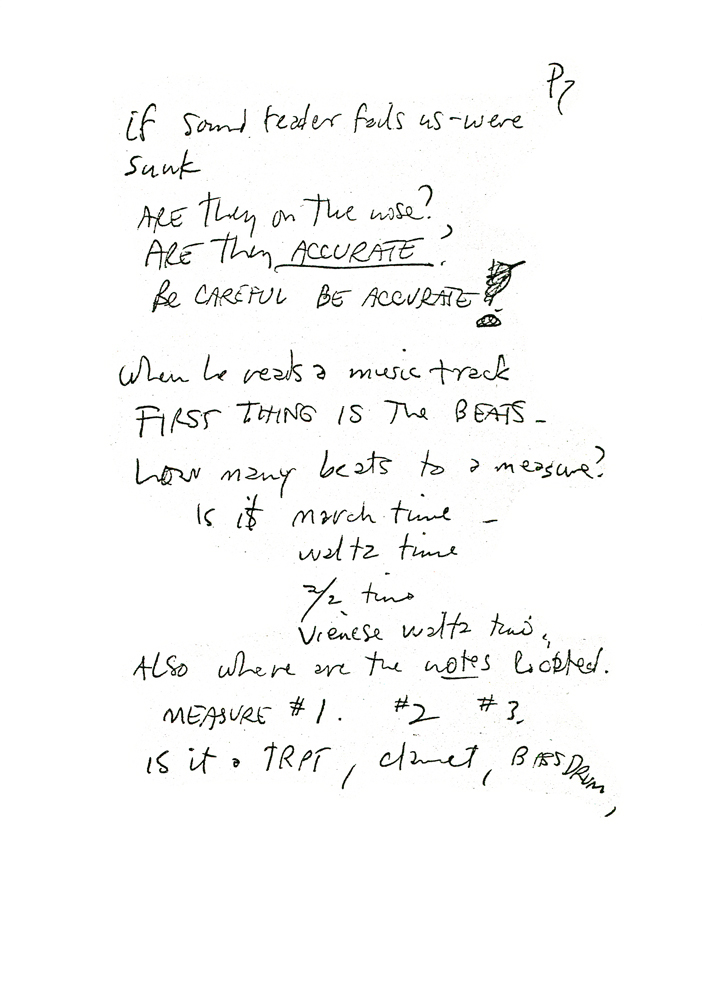 P7
if sound reader fails us-were
sunk
ARE they on the nose?
ARE they ACCURATE?
Be CAREFUL BE ACCURATE!
When he reads a music track
FIRST THING IS The BEATS-
how many beats to a measure?
Is it march time -
waltz time
2/2 time
Vienese waltz time.
ALSO where are the notes located.
MEASURE #1. #2 #3.
IS it a TRPT, clarinet, BASS DRUM,